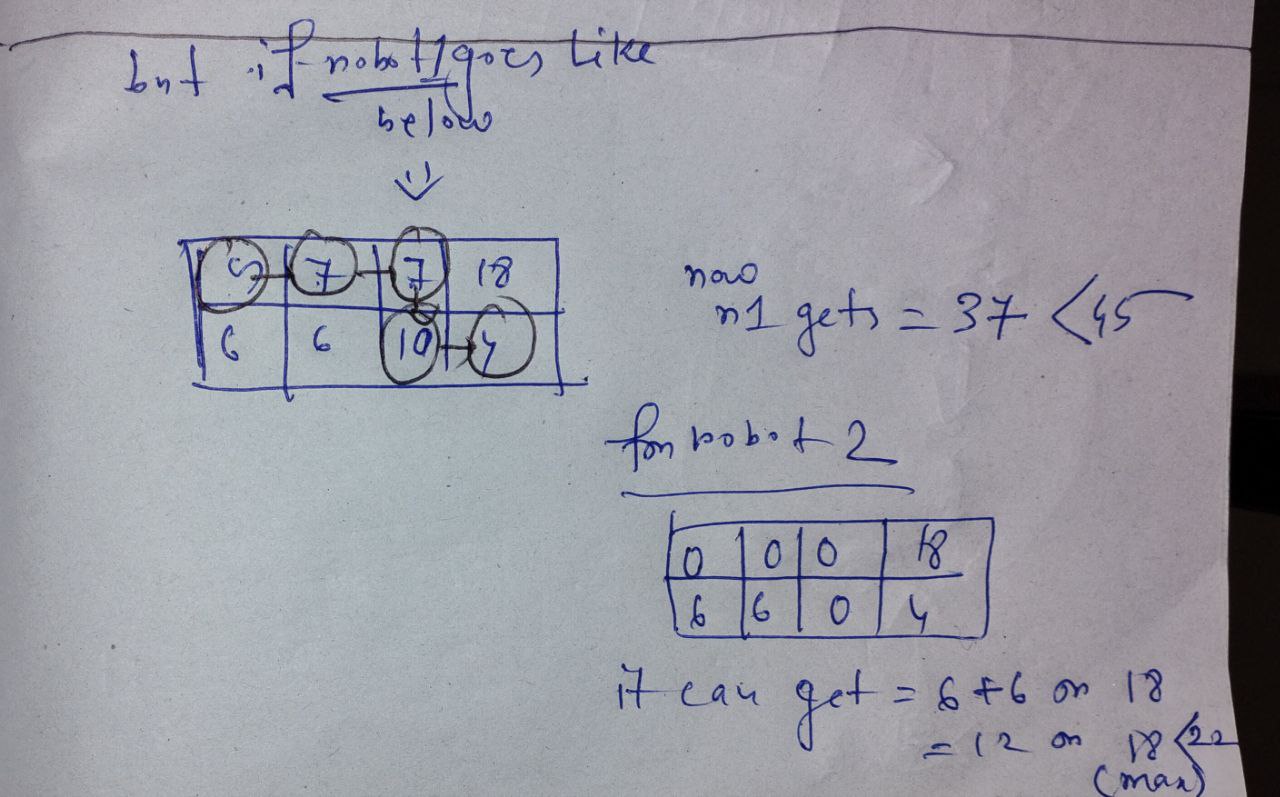 but if robot1 goes like
below
5 7 7 18
6 6 10 4
now
r1 gets = 37 < 45
for robot 2
0 0 0 18
6 6 0 4
it can get = 6+6 or 18
= 12 or 18 < 22
(max)